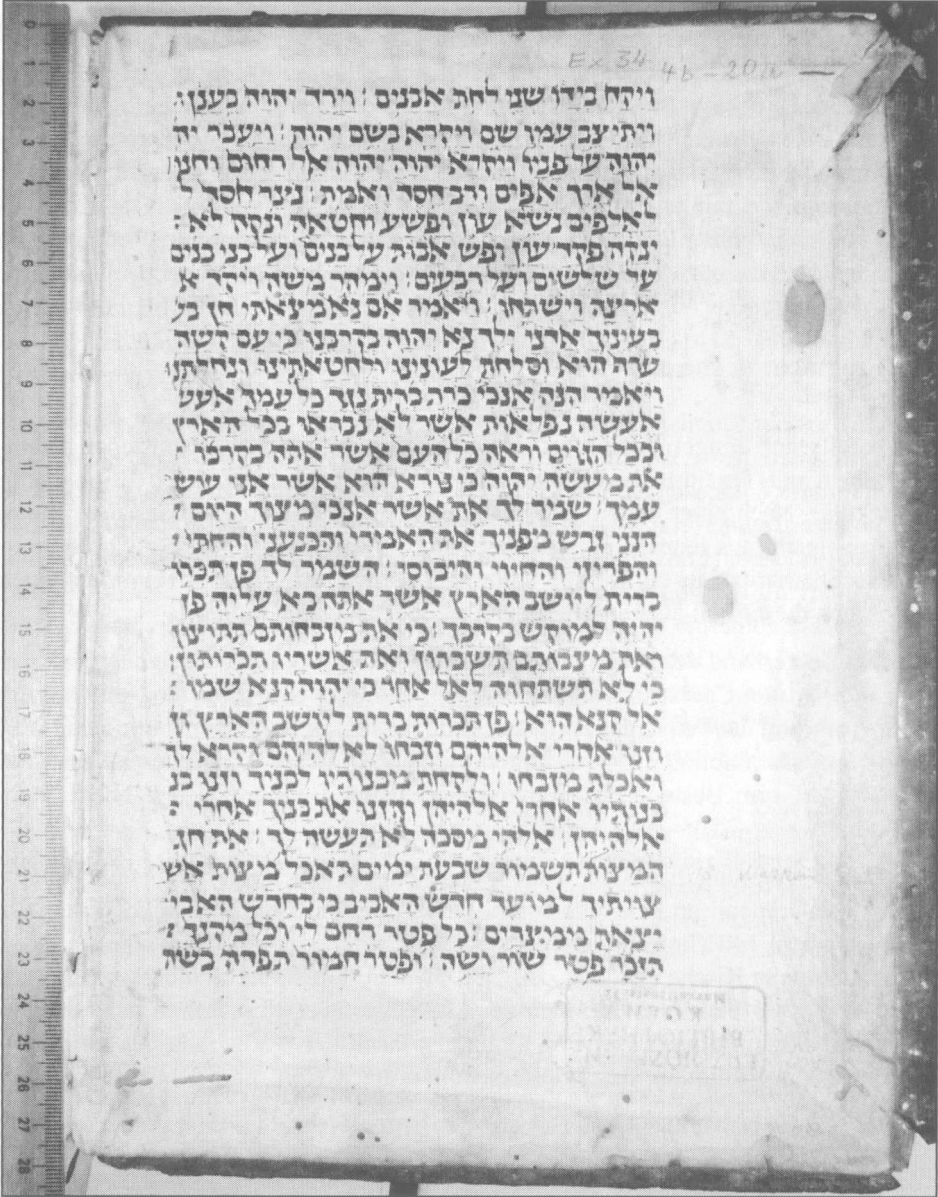 Ex. 34 4b-20a
ויקח בידו שני לחת אבנים : וירד יהוה בענן :
ויתיצב עמו שם ויקרא בשם יהוה : ויעבר יה
יהוה על פניו ויקרא יהוה יהוה אל רחום וחנון
אל ארך אפים ורב חסד ואמת : נצר חסד ל
לאלפים נשא עון ופשע וחטאה ונקה לא :
ינקה פקד עון ופש אבות על בנים ועל בני בנים
על שלשים ועל רבעים : וימהר משה ויקד א
ארצה וישתחו : ויאמר אם נא מצאתי חן בע
בעיניך אדני ילך נא יהוה בקרבנו כי עם קשה
ערף הוא וסלחת לעונינו לחטאתינו ונחלתנו
ויאמר הנה אנכי כרת ברית נגד כל עמך אעש
אעשה נפלאות אשר לא נבראו בכל הארץ
ובכל הגוים וראה כל העם אשר אתה בקרבו :
את מעשה יהוה כי נורא הוא אשר אני עוש
עמך : שמר לך את אשר אנכי מצוך היום :
הנני גרש מפניך את האמרי והכנעני והחתי :
והפריזי והחוי והיבוסי : השמר לך פן תכר
ברית ליושב הארץ אשר אתה בא עליה פן
יהיה למוקש בקרבך : כי את מזבחותם תתיצון
ואת מצבותם תשברון ואת אשריו תכרותון
כי לא תשתחוה לאל אחר כי יהוה קנא שמו :
אל קנא הוא : פן תכרות ברית ליושב הארץ וז
וזנו אחרי אלהיהם וזבחו לאלהיהם וקרא לך
ואכלת מזבחו : ולקחת מבנותיו לבניך וזנו בנ
בנותיו אחרי אלהיהן והזנו את בניך אחרי :
אלהיהן : אלהי מסכה לא תעשה לך : את חג
המצות תשמור שבעת ימים תאכל מצות אש
צויתיך למועד חדש האביב כי בחדש האבי
יצאת ממצרים : כל פטר רחם לי וכל מקנך :
תזכר פטר שור ושה : ופטר חמור תפדה בשה